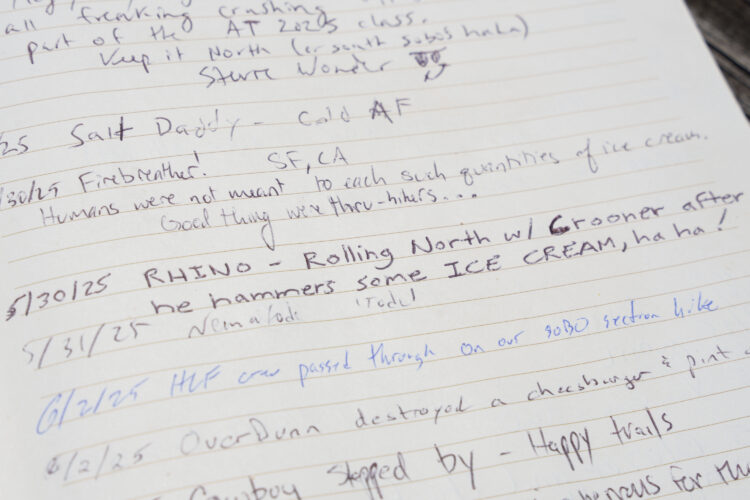 all freaking crashing
part of the AT 2025 class.
Keep it North (or south sobos haha)
Stevie Wonder
25 Salt Daddy - Cold AF
/30/25 Firebrenther! SF, CA
Humans were not meant to each such quantities of ice cream.
Good thing we're thru-hikers...
5/30/25 RHINO - Rolling North w/ Crooner after
he hammers some ICE CREAM, ha ha!
5/31/25 Nematode
6/2/25 HLF crew passed through on our SOBO section hike
6/2/25 OverDunn destroyed a cheesburger & pint
Cowboy stopped by - Happy trails
for